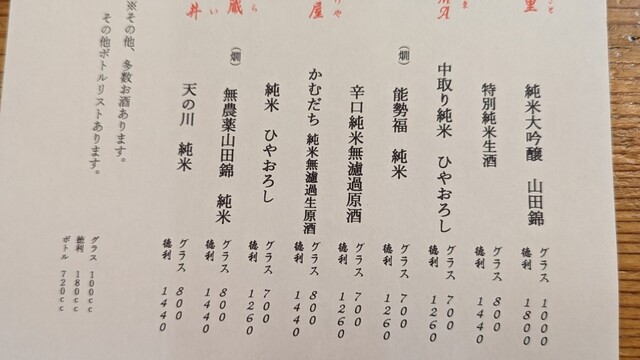 純米大吟醸 山田錦 グラス 1000
徳利 1800
特別純米生酒 グラス 800
徳利 1440
中取り純米 ひやおろし グラス 700
徳利 1260
(燗) 能勢福 純米 グラス 700
徳利 1260
辛口純米無濾過原酒 グラス 700
徳利 1260
かむだち 純米無濾過生原酒 グラス 800
徳利 1440
純米 ひやおろし グラス 700
徳利 1260
(燗) 無農薬山田錦 純米 グラス 800
徳利 1440
天の川 純米 グラス 800
徳利 1440
※その他、多数お酒あります。
その他ボトルリストあります。
グラス 100cc
徳利 180cc
ボトル 720cc